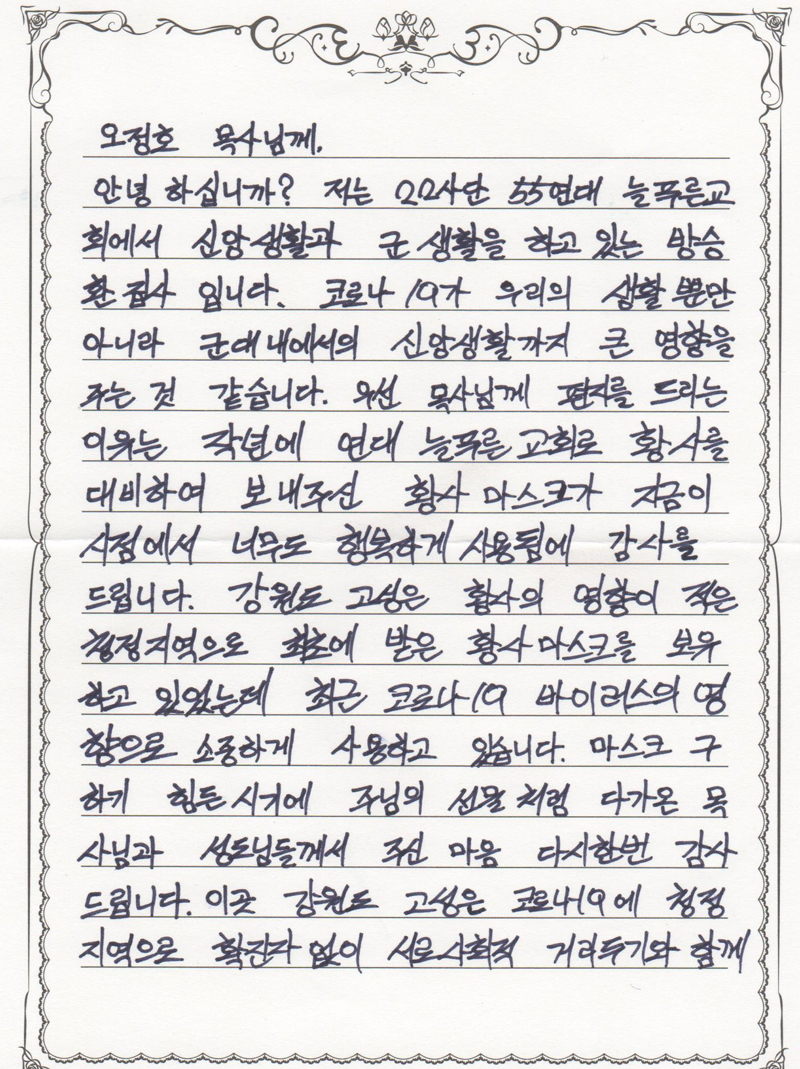 오정호 목사님께.
안녕 하십니까? 저는 22사단 55연대 늘푸른교
회에서 신앙생활과 군 생활을 하고 있는 방승
환 집사 입니다. 코로나19가 우리의 생활 뿐만
아니라 군대 내에서의 신앙생활까지 큰 영향을
주는 것 같습니다. 우선 목사님께 편지를 드리는
이유는 작년에 연대 늘푸른 교회로 황사를
대비하여 보내주신 황사 마스크가 지금이
시점에서 너무도 행복하게 사용됨에 감사를
드립니다. 강원도 고성은 황사의 영향이 적은
청정지역으로 최초에 받은 황사 마스크를 보유
하고 있었는데 최근 코로나19 바이러스의 영
향으로 소중하게 사용하고 있습니다. 마스크 구
하기 힘든 시기에 주님의 선물 처럼 다가온 목
사님과 성도님들께서 주신 마음 다시한번 감사
드립니다. 이곳 강원도 고성은 코로나19에 청정
지역으로 확진자 없이 서로 사회적 거리두기와 함께